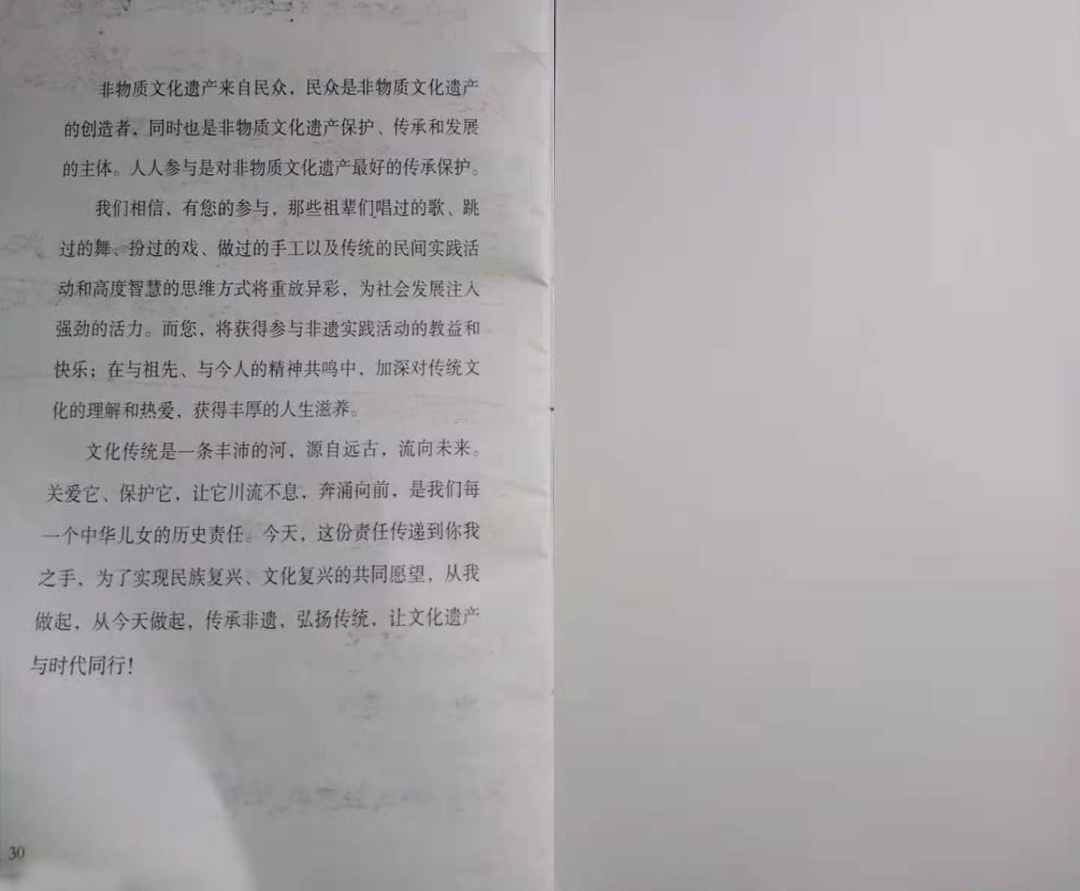 非物质文化遗产来自民众，民众是非物质文化遗产
的创造者，同时也是非物质文化遗产保护、传承和发展
的主体。人人参与是对非物质文化遗产最好的传承保护。
我们相信，有您的参与，那些祖辈们唱过的歌、跳
过的舞、扮过的戏、做过的手工以及传统的民间实践活
动和高度智慧的思维方式将重放异彩，为社会发展注入
强劲的活力。而您，将获得参与非遗实践活动的教益和
快乐；在与祖先、与今人的精神共鸣中，加深对传统文
化的理解和热爱，获得丰厚的人生滋养。
文化传统是一条丰沛的河，源自远古，流向未来。
关爱它、保护它，让它川流不息，奔涌向前，是我们每
一个中华儿女的历史责任。今天，这份责任传递到你我
之手，为了实现民族复兴、文化复兴的共同愿望，从我
做起，从今天做起，传承非遗，弘扬传统，让文化遗产
与时代同行！
30